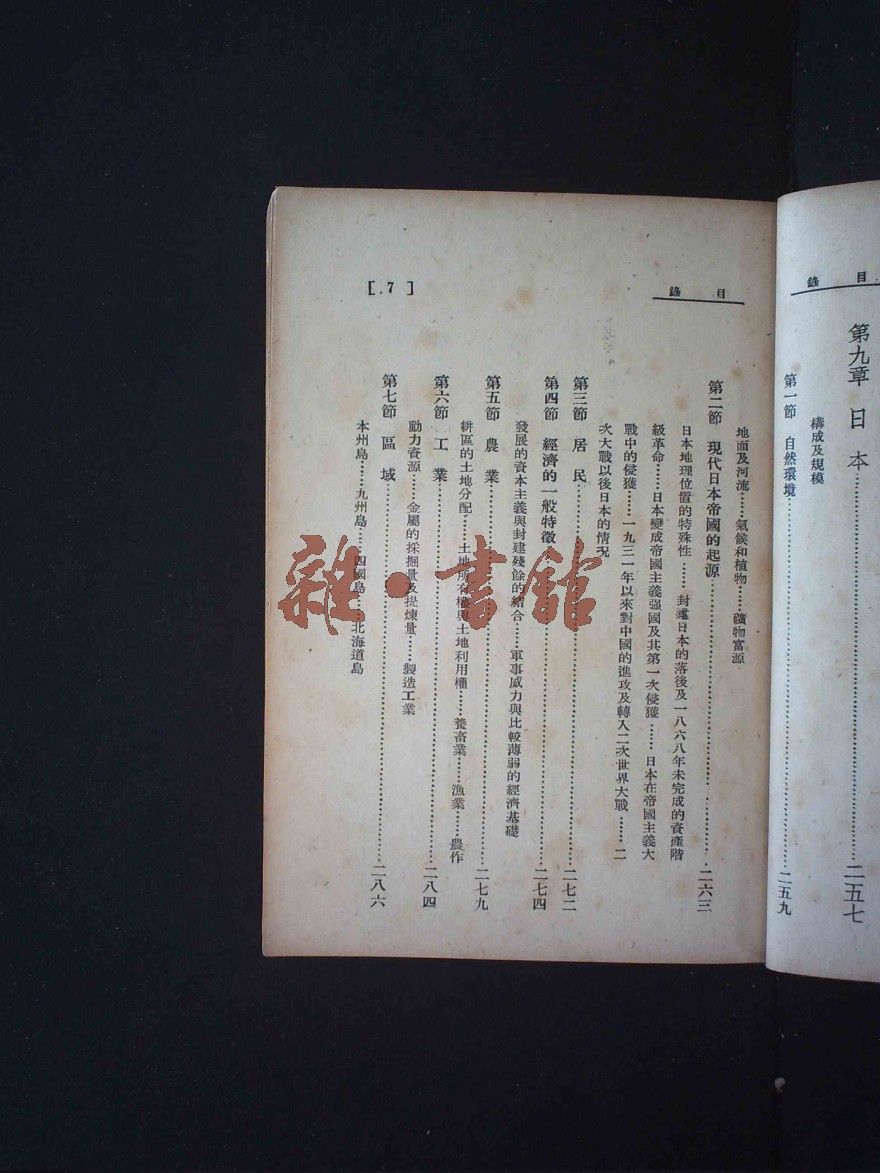 目錄
第九章 日本……二五七
構成及規模
第一節 自然環境……二五九
目錄
地面及河流……氣候和植物……礦物富源
第二節 現代日本帝國的起源……二六三
日本地理位置的特殊性……封建日本的落後及一八六八年未完成的資產階
級革命……日本變成帝國主義强國及其第一次侵獲……日本在帝國主義大
戰中的侵獲……一九三一年以來對中國的進攻及轉入二次世界大戰……二
次大戰以後日本的情況
第三節 居民……二七二
第四節 經濟的一般特徵……二七四
發展的資本主義與封建殘餘的結合……軍事威力與比較薄弱的經濟基礎
第五節 農業……二七九
耕區的土地分配……土地所有權與土地利用權……養畜業……漁業……農作
第六節 工業……二八四
動力資源……金屬的採掘量及提煉量……製造工業
第七節 區域……二八六
本州島……九州島……四國島……北海道島
[.7]
雜·書館